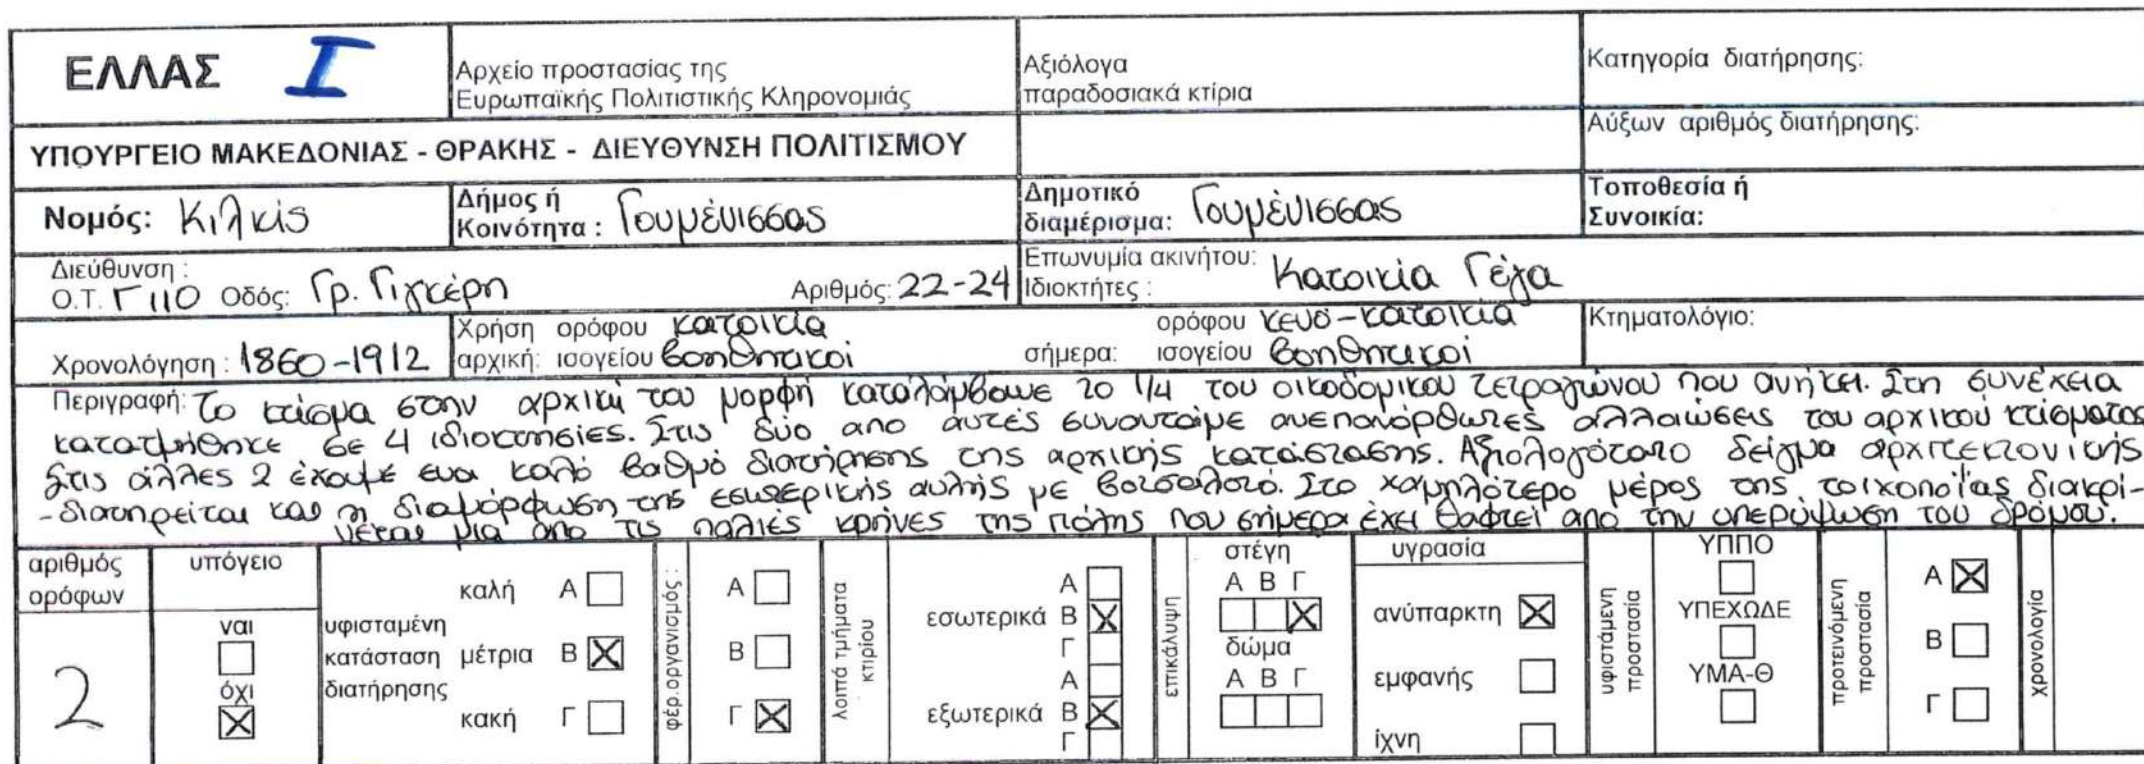 ΕΛΛΑΣ I
Αρχείο προστασίας της
Ευρωπαϊκής Πολιτιστικής Κληρονομιάς
Αξιόλογα
παραδοσιακά κτίρια
Κατηγορία διατήρησης:
ΥΠΟΥΡΓΕΙΟ ΜΑΚΕΔΟΝΙΑΣ - ΘΡΑΚΗΣ - ΔΙΕΥΘΥΝΣΗ ΠΟΛΙΤΙΣΜΟΥ
Αύξων αριθμός διατήρησης:
Νομός: Κιλκίς
Δήμος ή
Κοινότητα : Γουμένισσας
Δημοτικό
διαμέρισμα: Γουμένισσας
Τοποθεσία ή
Συνοικία:
Διεύθυνση :
Ο.Τ. Γ110 Οδός: Γρ. Γιγκέρη Αριθμός: 22-24
Επωνυμία ακινήτου: Κατοικία Γέγα
Ιδιοκτήτες :
Χρονολόγηση : 1860-1912
Χρήση ορόφου κατοικία
αρχική: ισογείου βοηθητικοί
ορόφου κενό-κατοικία
σήμερα: ισογείου βοηθητικοί
Κτηματολόγιο:
Περιγραφή: Το κτίσμα στην αρχική του μορφή καταλάμβανε το 1/4 του οικοδομικού τετραγώνου που ανήκει. Στη συνέχεια
κατατμήθηκε σε 4 ιδιοκτησίες. Στις δύο από αυτές συναντάμε ανεπανόρθωτες αλλοιώσεις του αρχικού κτίσματος
Στις άλλες 2 έχουμε ένα καλό βαθμό διατήρησης της αρχικής κατάστασης. Αξιολογότατο δείγμα αρχιτεκτονικής
-διατηρείται και η διαμόρφωση της εσωτερικής αυλής με βοτσαλοτό. Στο χαμηλότερο μέρος της τοιχοποιΐας διακρί-
νεται μια από τις παλιές κρήνες της πόλης που σήμερα έχει θαφτεί από την υπερύψωση του δρόμου.
αριθμός
ορόφων
2
υπόγειο
ναι
όχι
υφισταμένη
κατάσταση
διατήρησης
καλή Α
μέτρια Β
κακή Γ
φέρ.οργανισμός :
Α
Β
Γ
λοιπά τμήματα
κτιρίου
εσωτερικά
Α
Β
Γ
εξωτερικά
Α
Β
Γ
επικάλυψη
στέγη
Α Β Γ
δώμα
Α Β Γ
υγρασία
ανύπαρκτη
εμφανής
ίχνη
υφιστάμενη
προστασία
ΥΠΠΟ
ΥΠΕΧΩΔΕ
ΥΜΑ-Θ
προτεινόμενη
προστασία
Α
Β
Γ
χρονολογία